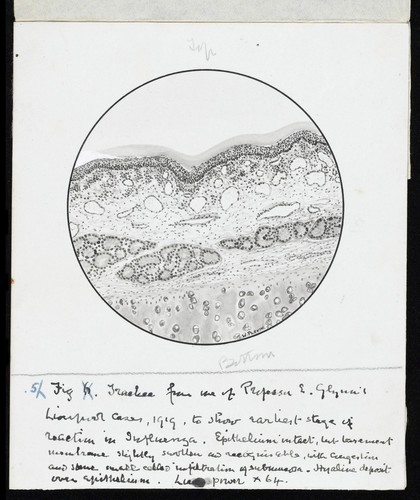 Top
A.W.
Bottom
5/ Fig. Trachea from one of Professor E. Glynn's
Liverpool cases, 1919, to show earliest stage of
reaction in Influenza. Epithelium intact, but basement
membrane slightly swollen and recognisable, with congestion
and some small celled infiltration of submucosa. Hyaline deposit
over epithelium. Low power × 64.